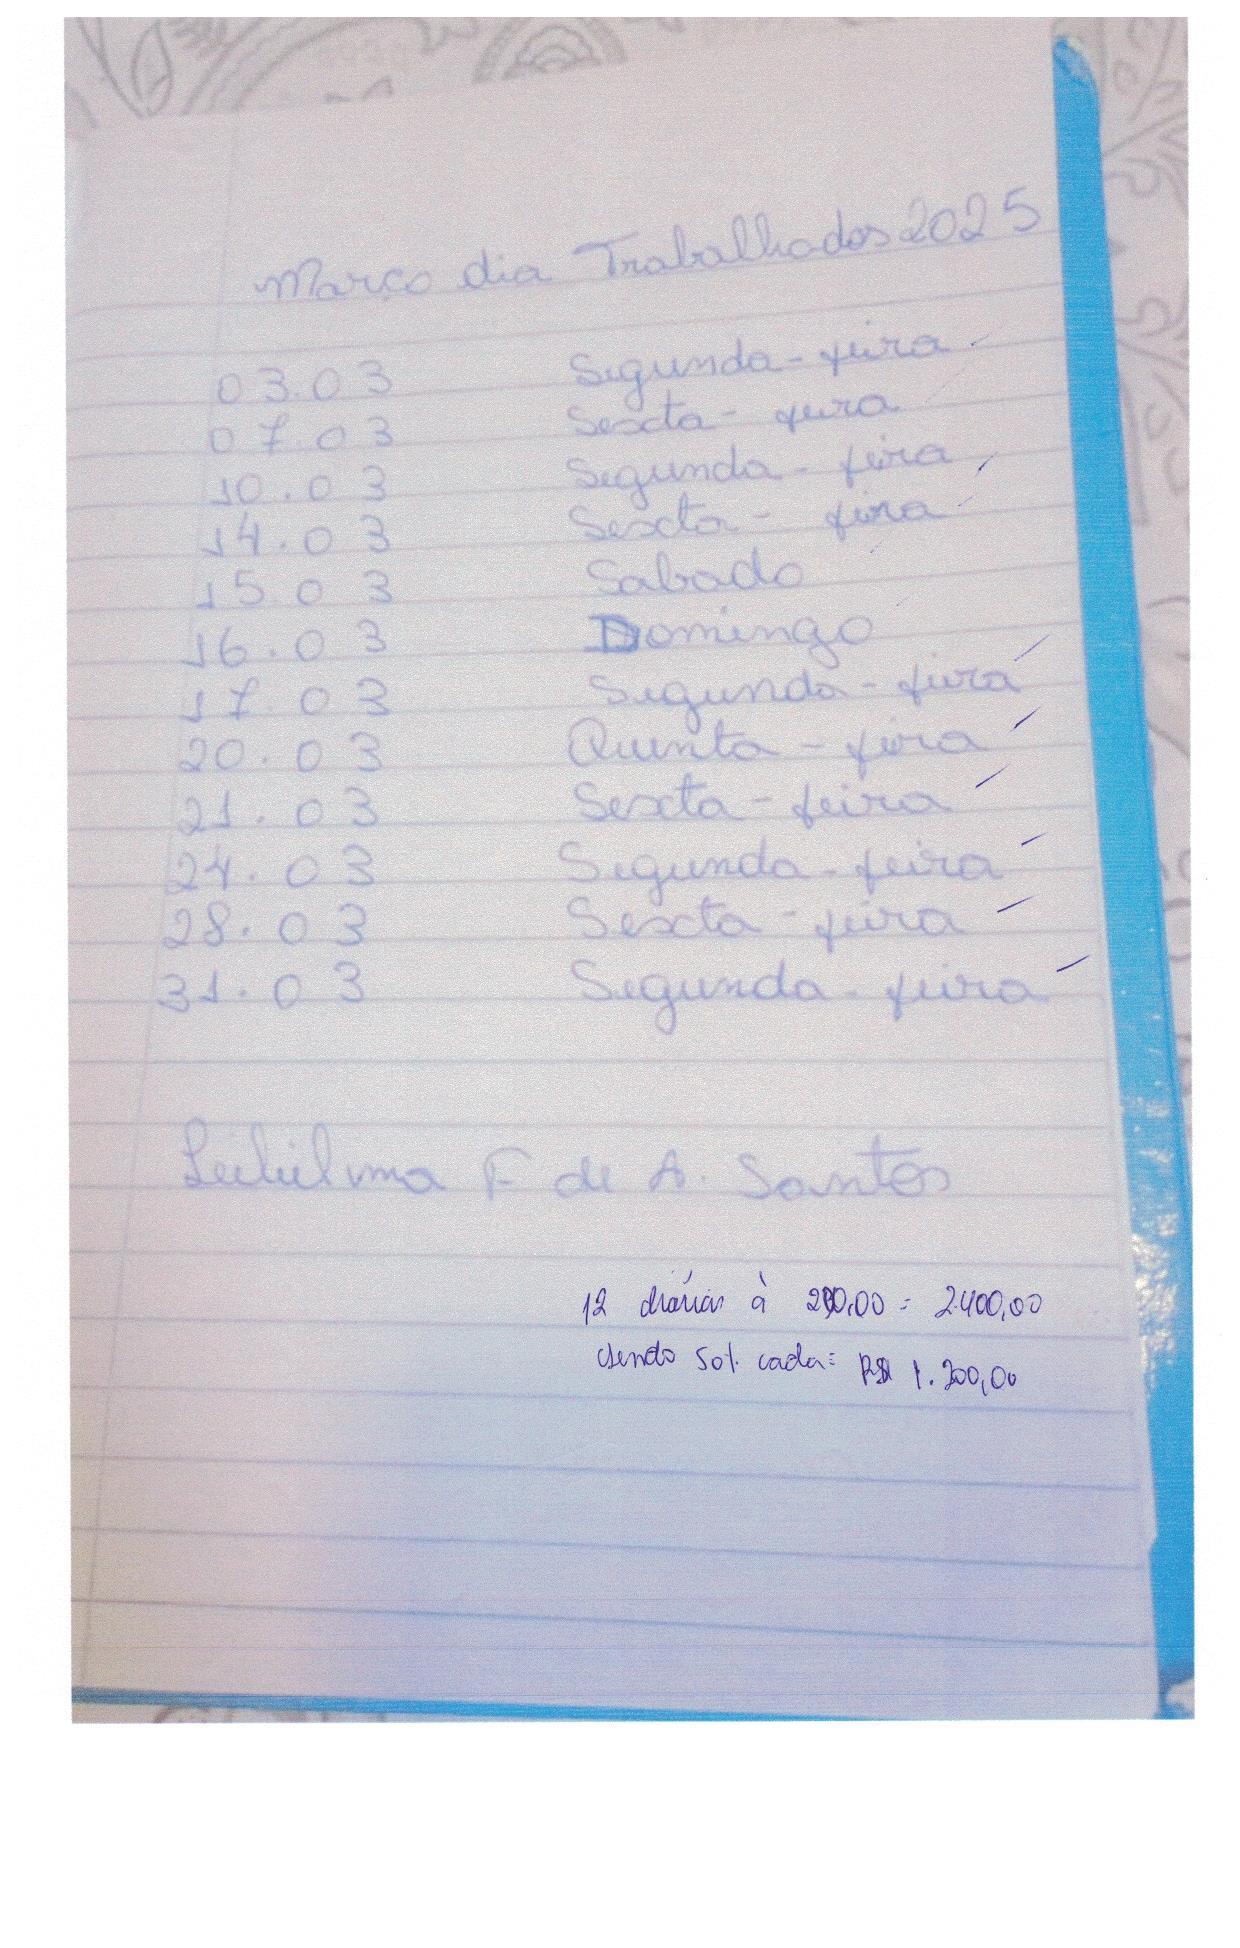 Março dia Trabalhados 2025
03.03 Segunda-feira
07.03 Sexta-feira
10.03 Segunda-feira
14.03 Sexta-feira
15.03 Sabado
16.03 Domingo
17.03 Segunda-feira
20.03 Quinta-feira
21.03 Sexta-feira
24.03 Segunda-feira
28.03 Sexta-feira
31.03 Segunda-feira
F de A. Santos
12 diárias à 200,00 = 2.400,00
sendo 50% cada: R$ 1.200,00